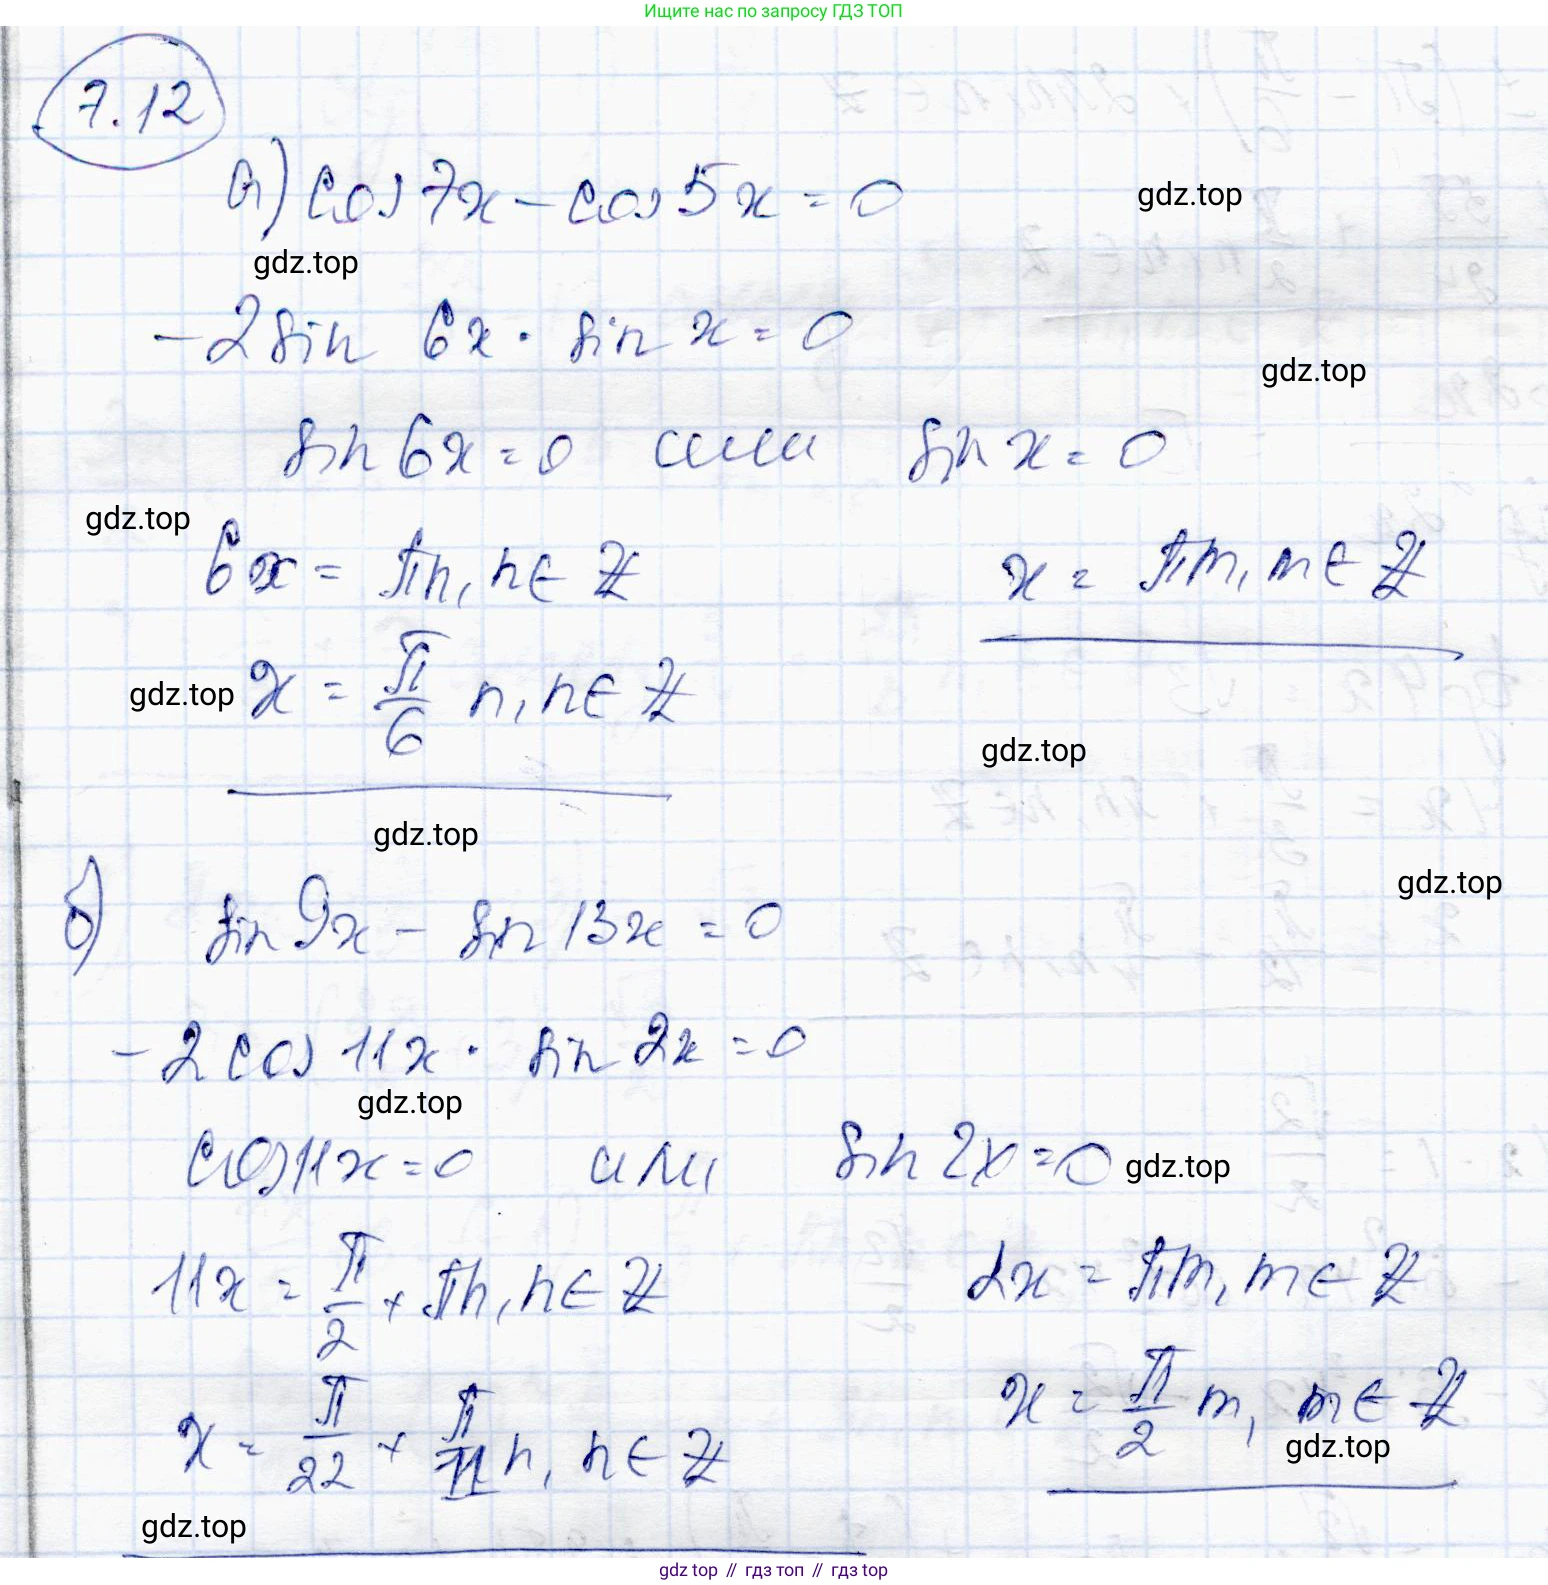 Ищите нас по запросу ГДЗ ТОП
7.12
а) cos 7x - cos 5x = 0
gdz.top
gdz.top
-2 sin 6x · sin x = 0
gdz.top
sin 6x = 0 или sin x = 0
gdz.top
6x = πn, n ∈ Z x = πm, m ∈ Z
gdz.top x = π/6 n, n ∈ Z
gdz.top
gdz.top
gdz.top
б) sin 9x - sin 13x = 0
-2 cos 11x · sin 2x = 0
gdz.top
cos 11x = 0 или sin 2x = 0 gdz.top
11x = π/2 + πn, n ∈ Z 2x = πm, m ∈ Z
x = π/22 + π/11 n, n ∈ Z x = π/2 m, m ∈ Z
gdz.top
gdz.top
gdz top // гдз топ // гдз top